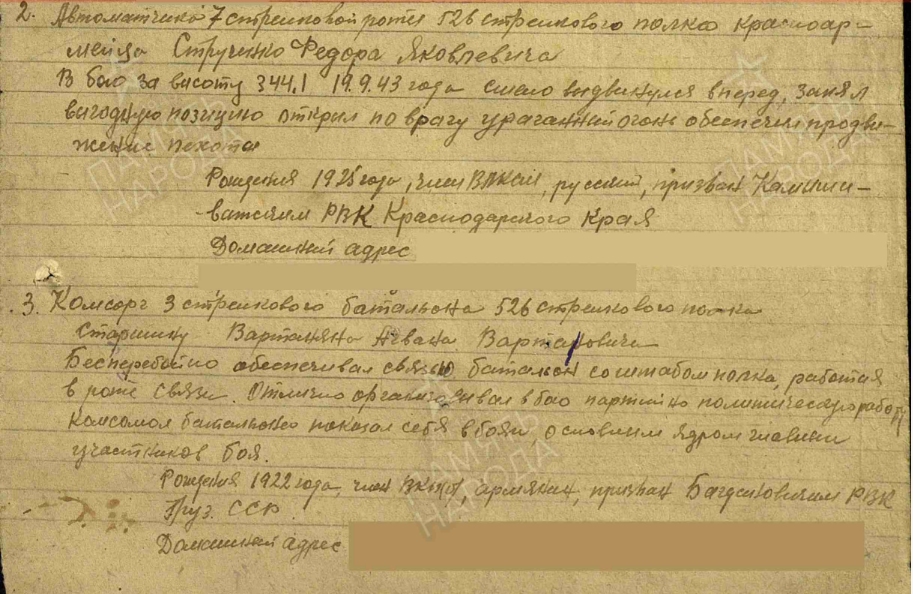 2. Автоматчика 7 стрелковой роты 526 стрелкового полка красноар-
мейца Стручено Федора Яковлевича
В бою за высоту 344.1 19.9.43 года смело выдвинулся вперед, занял
выгодную позицию открыл по врагу ураганный огонь обеспечил продви-
жение пехоты
Рождения 1925 года, член ВЛКСМ, русский, призван Калини-
РВК Краснодарского Края
Домашний адрес
3. Комсорг 3 стрелкового батальона 526 стрелкового полка
Старшину Вартаняна Агвана Вартановича
Бесперебойно обеспечивал связью батальон со штабом полка, работая
в роте связи. Отлично организовывал в бою партийно политическую работу
комсомол батальона показал себя в боях, основным ядром
участников боя.
Рождения 1922 года, член ВЛКСМ, армянин, призван РВК
Груз. ССР.
Домашний адрес
ПАМЯТЬ НАРОДА
ПАМЯТЬ НАРОДА
ПАМЯТЬ НАРОДА